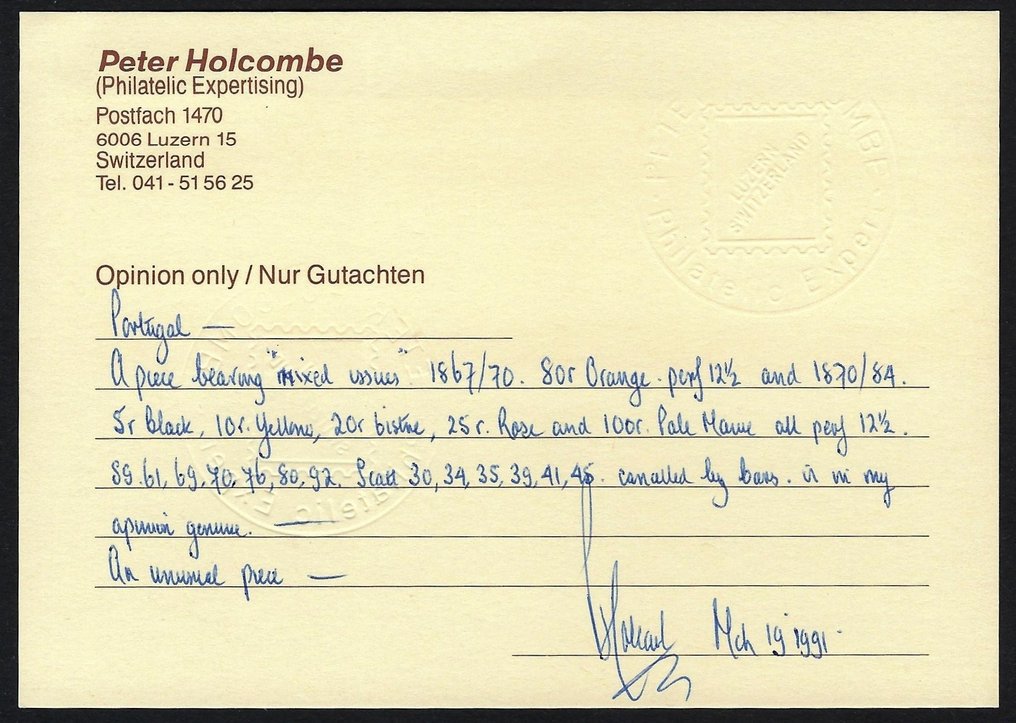 Peter Holcombe
(Philatelic Expertising)
Postfach 1470
6006 Luzern 15
Switzerland
Tel. 041 - 51 56 25
LUZERN
SWITZERLAND
Opinion only / Nur Gutachten
Portugal —
A piece bearing "mixed issues" 1867/70. 80r Orange. perf 12½ and 1870/84.
5r Black, 10r. Yellow, 20r bistre, 25r. Rose and 100r. Pale Mauve all perf 12½.
SG. 61, 69, 70, 76, 80, 92. Scott 30, 34, 35, 39, 41, 45. cancelled by bars. is in my
opinion genuine. —
An unusual piece —
Mch 19 1991.